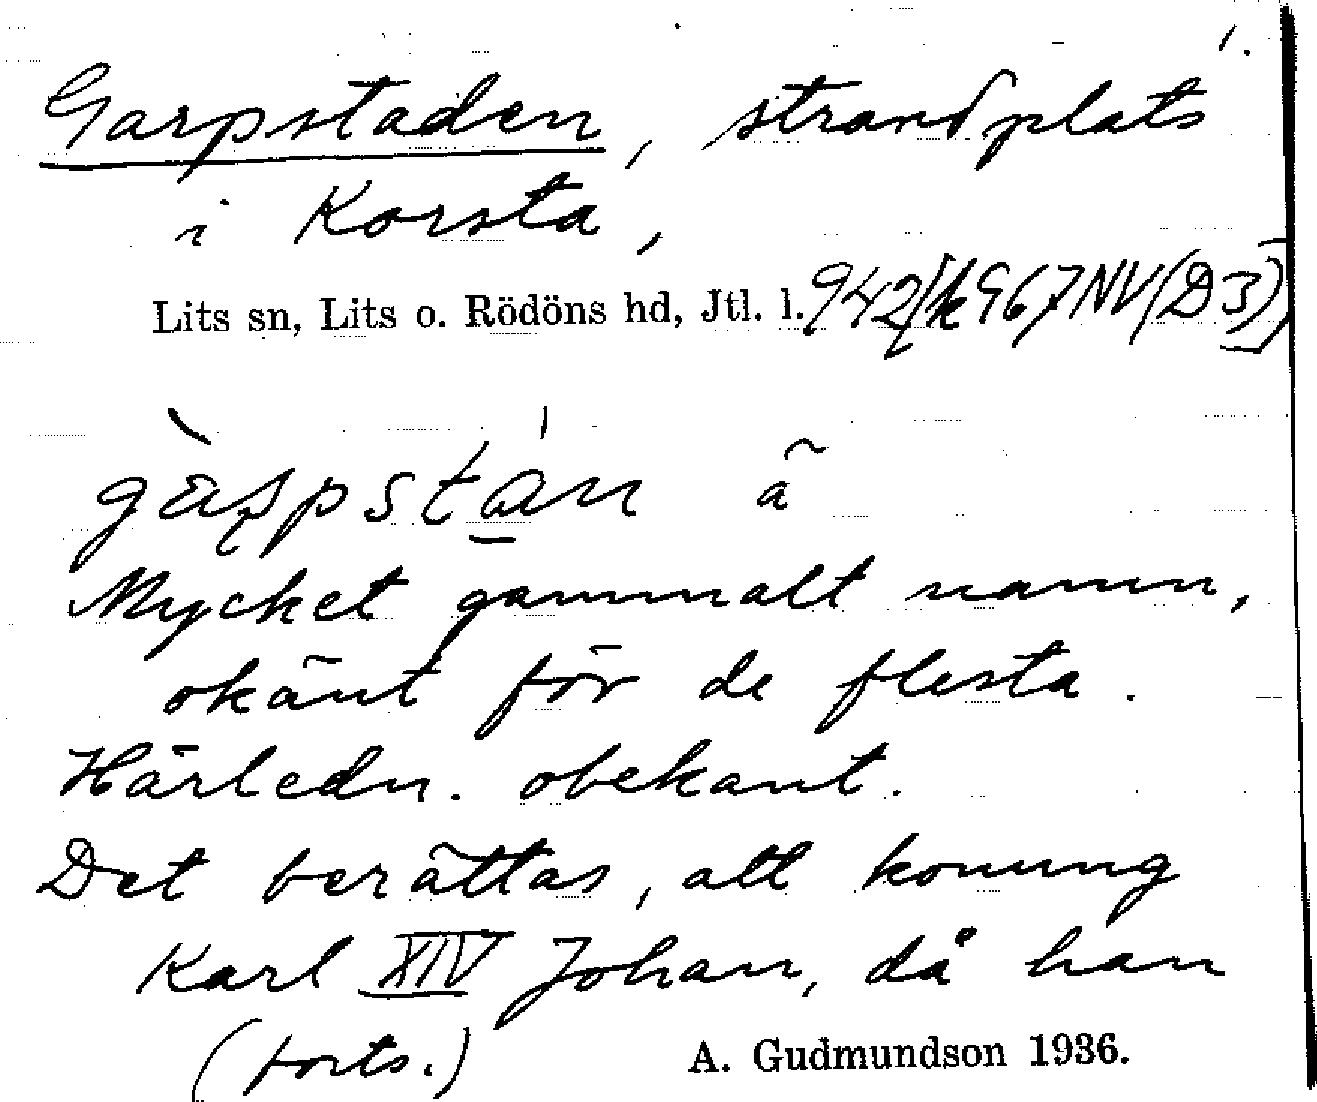 1.
Garpstaden, strandplats
i Korsta,
Lits sn, Lits o. Rödöns hd, Jtl. l. 942/k967NV(D3)
gàrpstan ã
Mycket gammalt namn,
okänt för de flesta.
Härledn. obekant.
Det berättas, att konung
Karl XIV Johan, då han
(forts.) A. Gudmundson 1936.